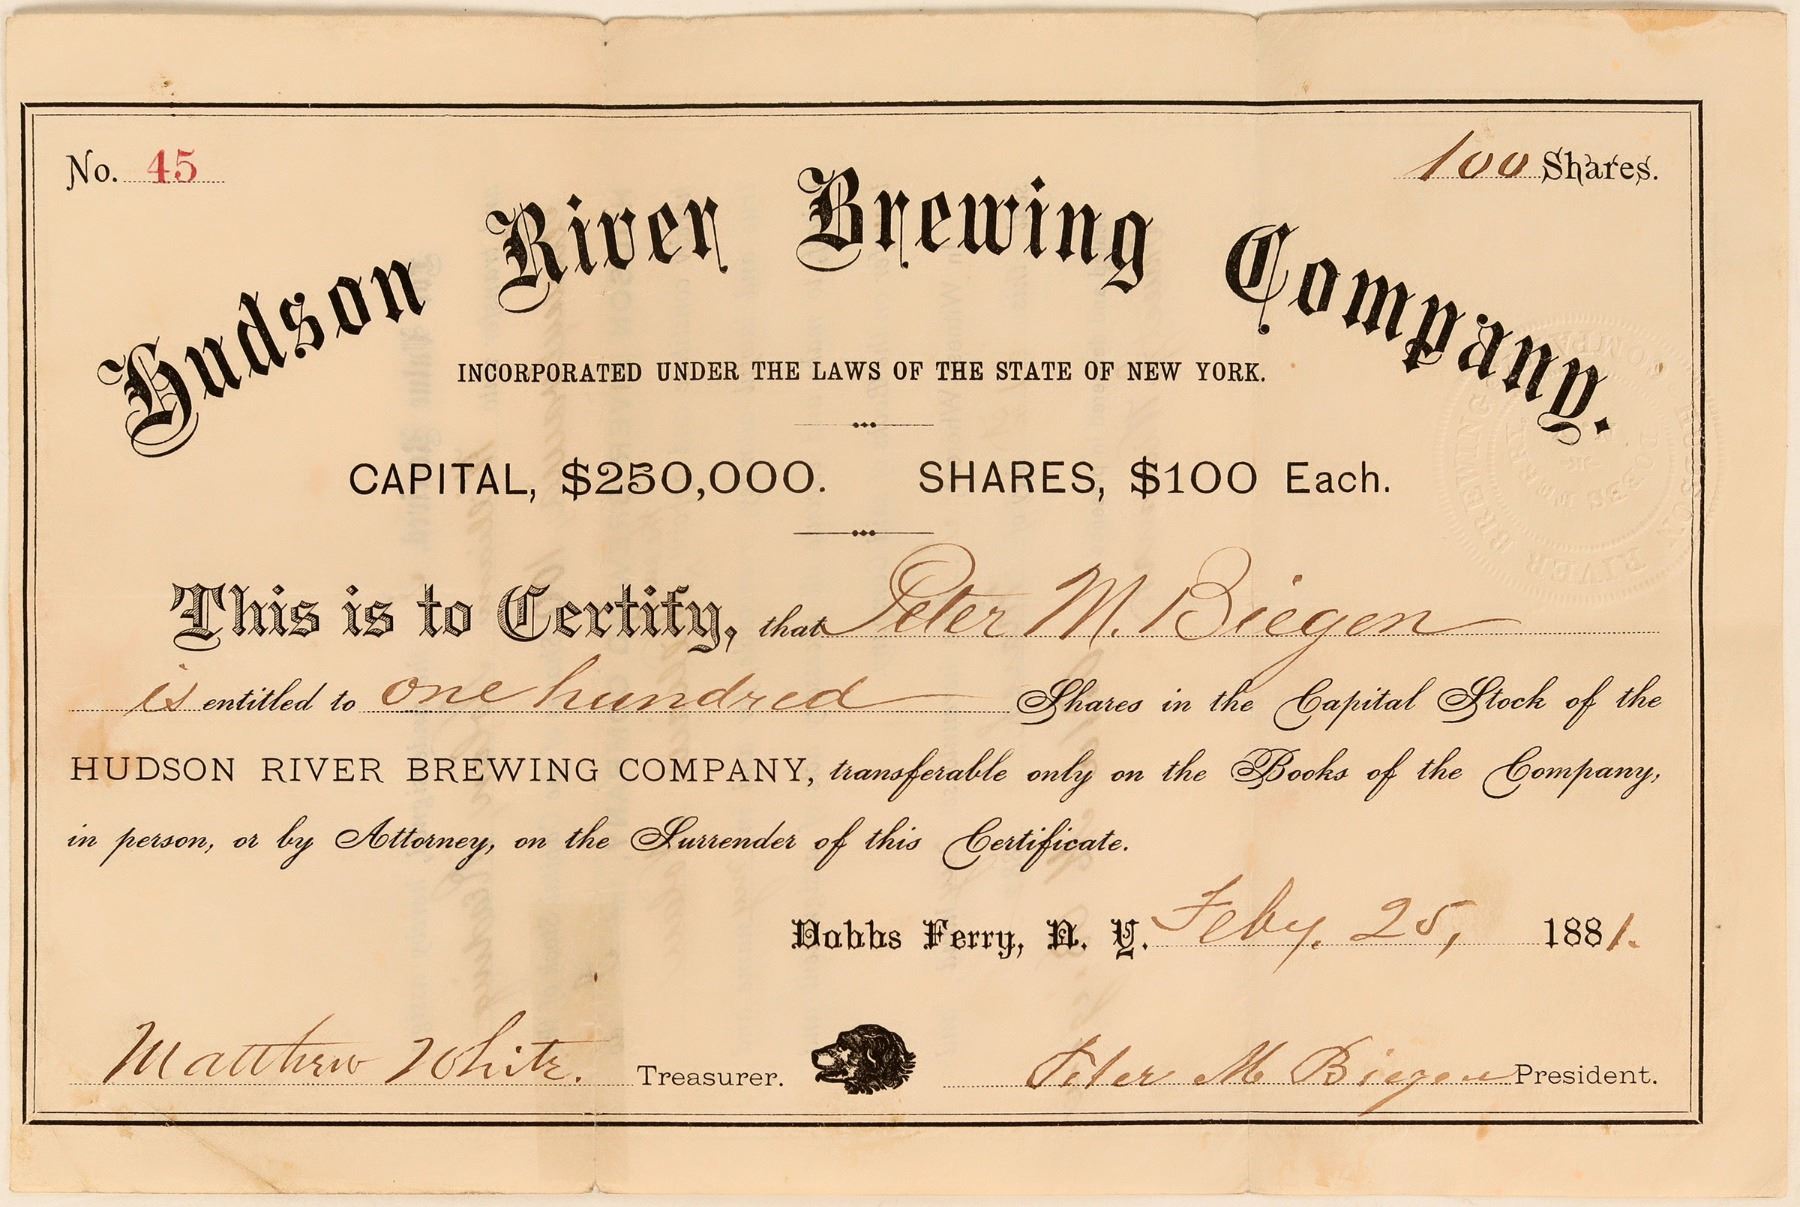 No. 45
100 Shares.
Hudson River Brewing Company.
INCORPORATED UNDER THE LAWS OF THE STATE OF NEW YORK.
CAPITAL, $250,000. SHARES, $100 Each.
HUDSON RIVER BREWING COMPANY
DOBBS FERRY
This is to Certify, that Peter M. Biegen
is entitled to one hundred Shares in the Capital Stock of the
HUDSON RIVER BREWING COMPANY, transferable only on the Books of the Company,
in person, or by Attorney, on the Surrender of this Certificate.
Dobbs Ferry, N. Y. Feby. 25, 1881.
Matthew White. Treasurer.
Peter M Biegen President.